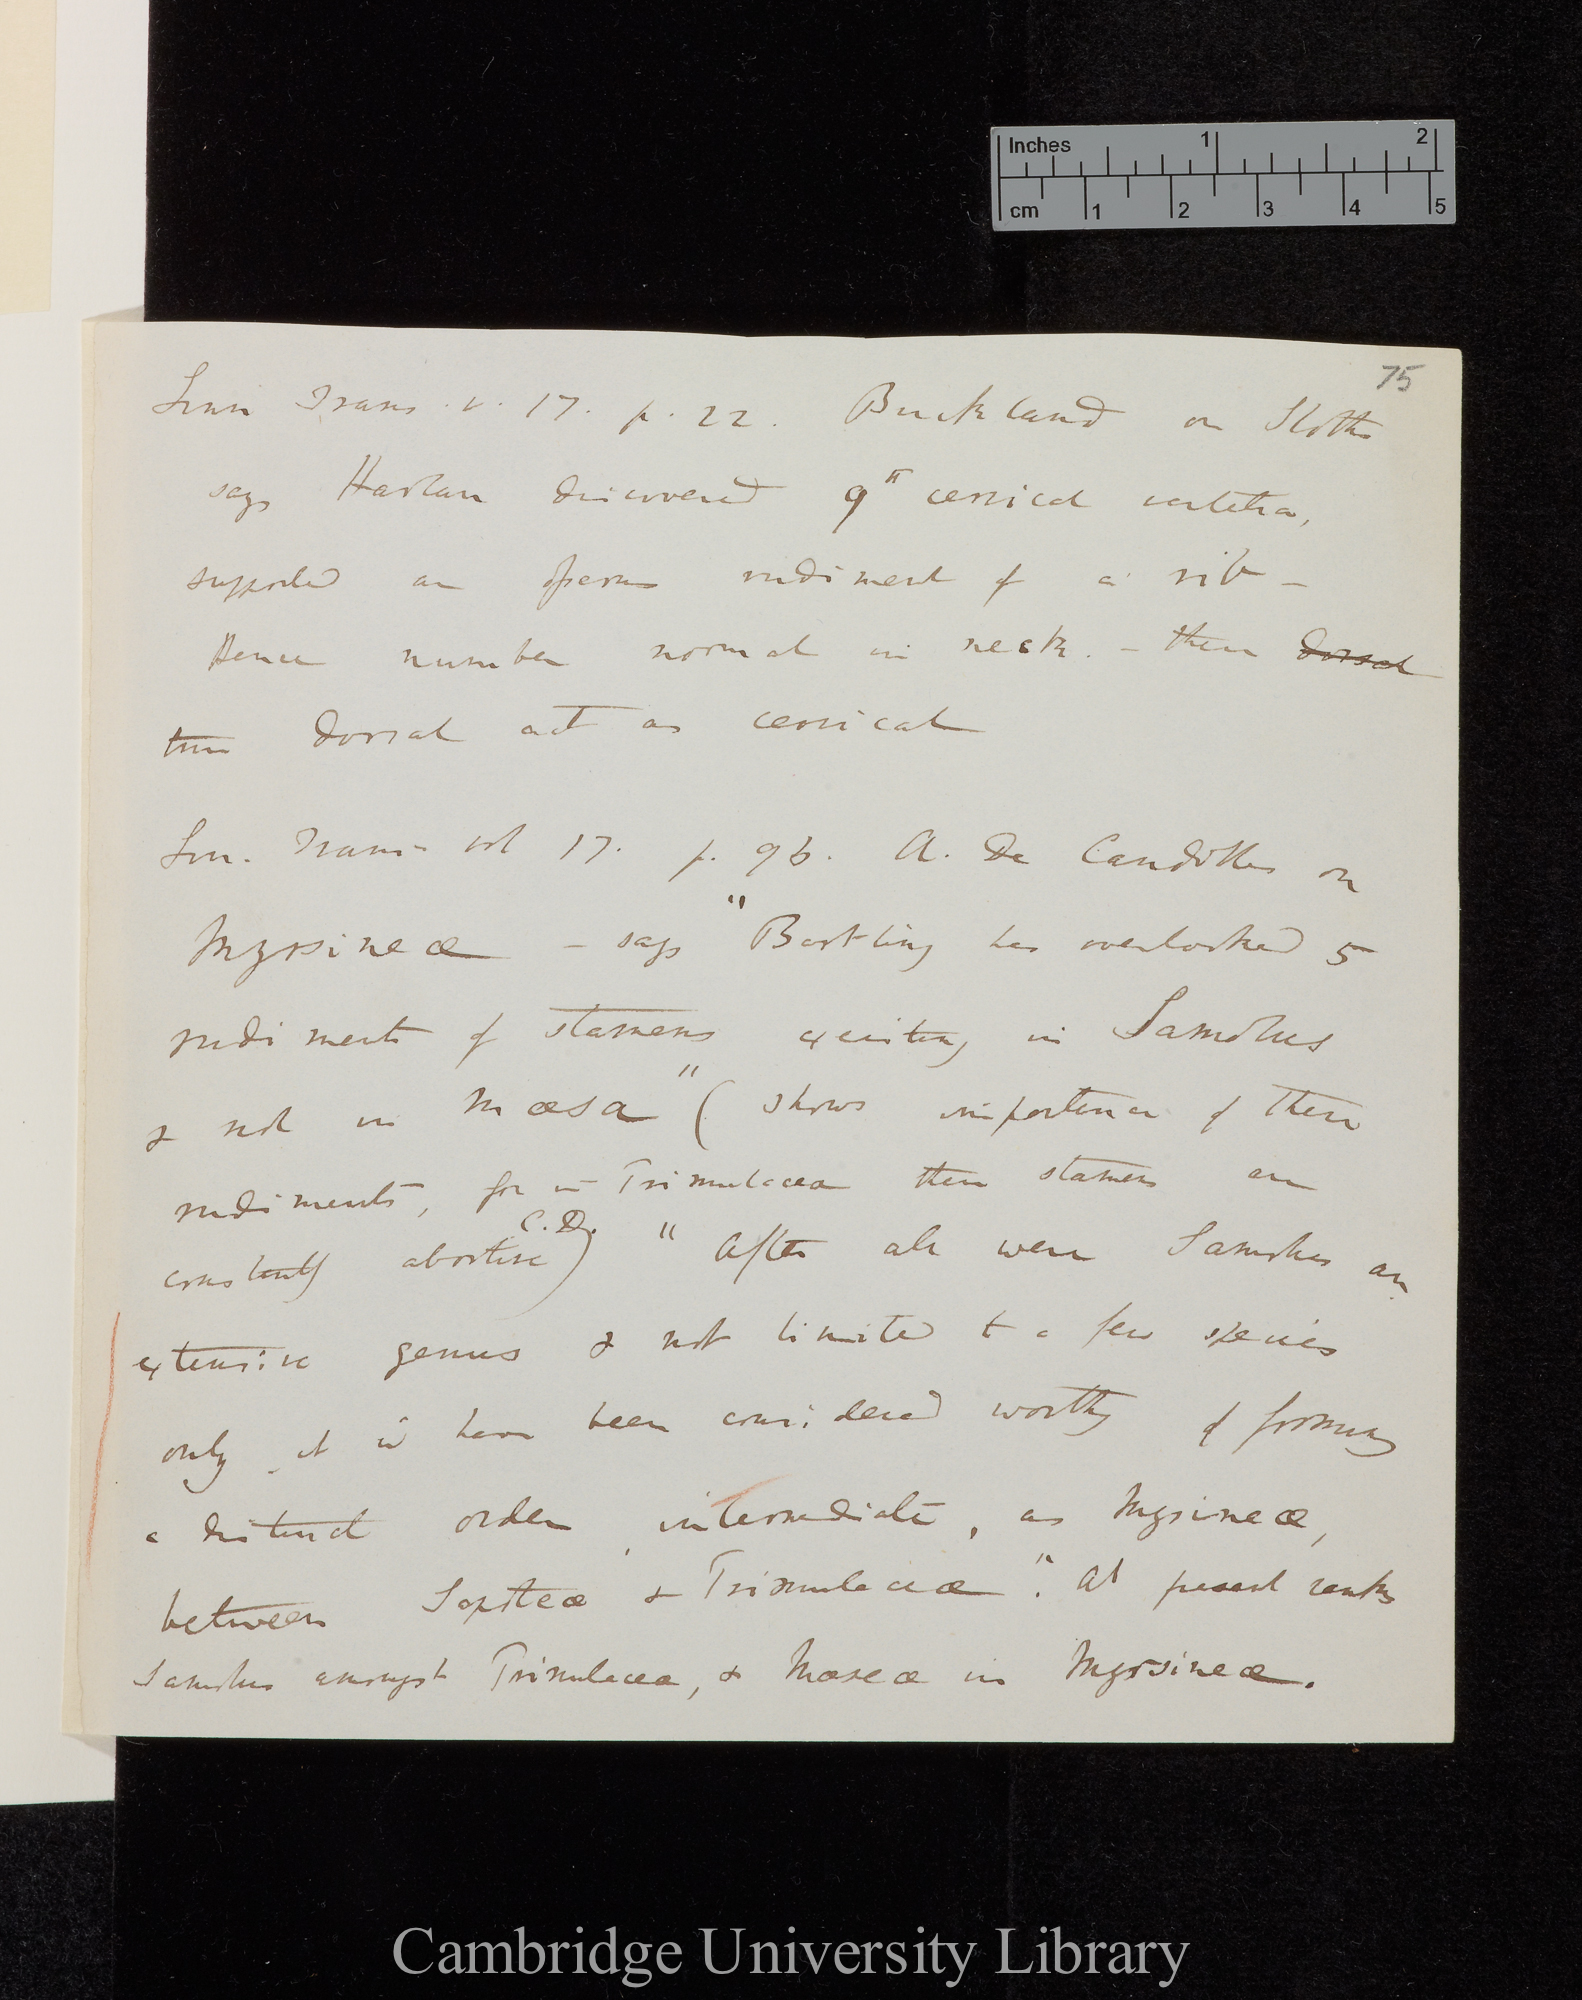 Inches 1 2
cm 1 2 3 4 5
75
Linn Trans. v. 17. p. 22. Buckland on Sloths
says Harlan discovered 9th cervical vertebra,
supported an rudiment of a rib –
Hence number normal in neck. – then dorsal
two dorsal act as cervical
Lin. Trans– vol 17. p. 96. A. De Candolles on
Myrsineæ – says "Bartling has overlooked 5
rudiments of stamens existing in Samolus
& not in Mæsa" (shows importance of these
rudiments, for in Primulaceæ these stamens are
C.D.
constantly abortive) "After all were Samolus an
extensive genus & not limited to a few species
only, it wd have been considered worthy of forming
a distinct order, intermediate, as Myrsineæ,
between Sapoteæ & Primulaceæ". At present ranks
Samolus amongst Primulaceæ, & Mæseæ in Myrsineæ.
Cambridge University Library